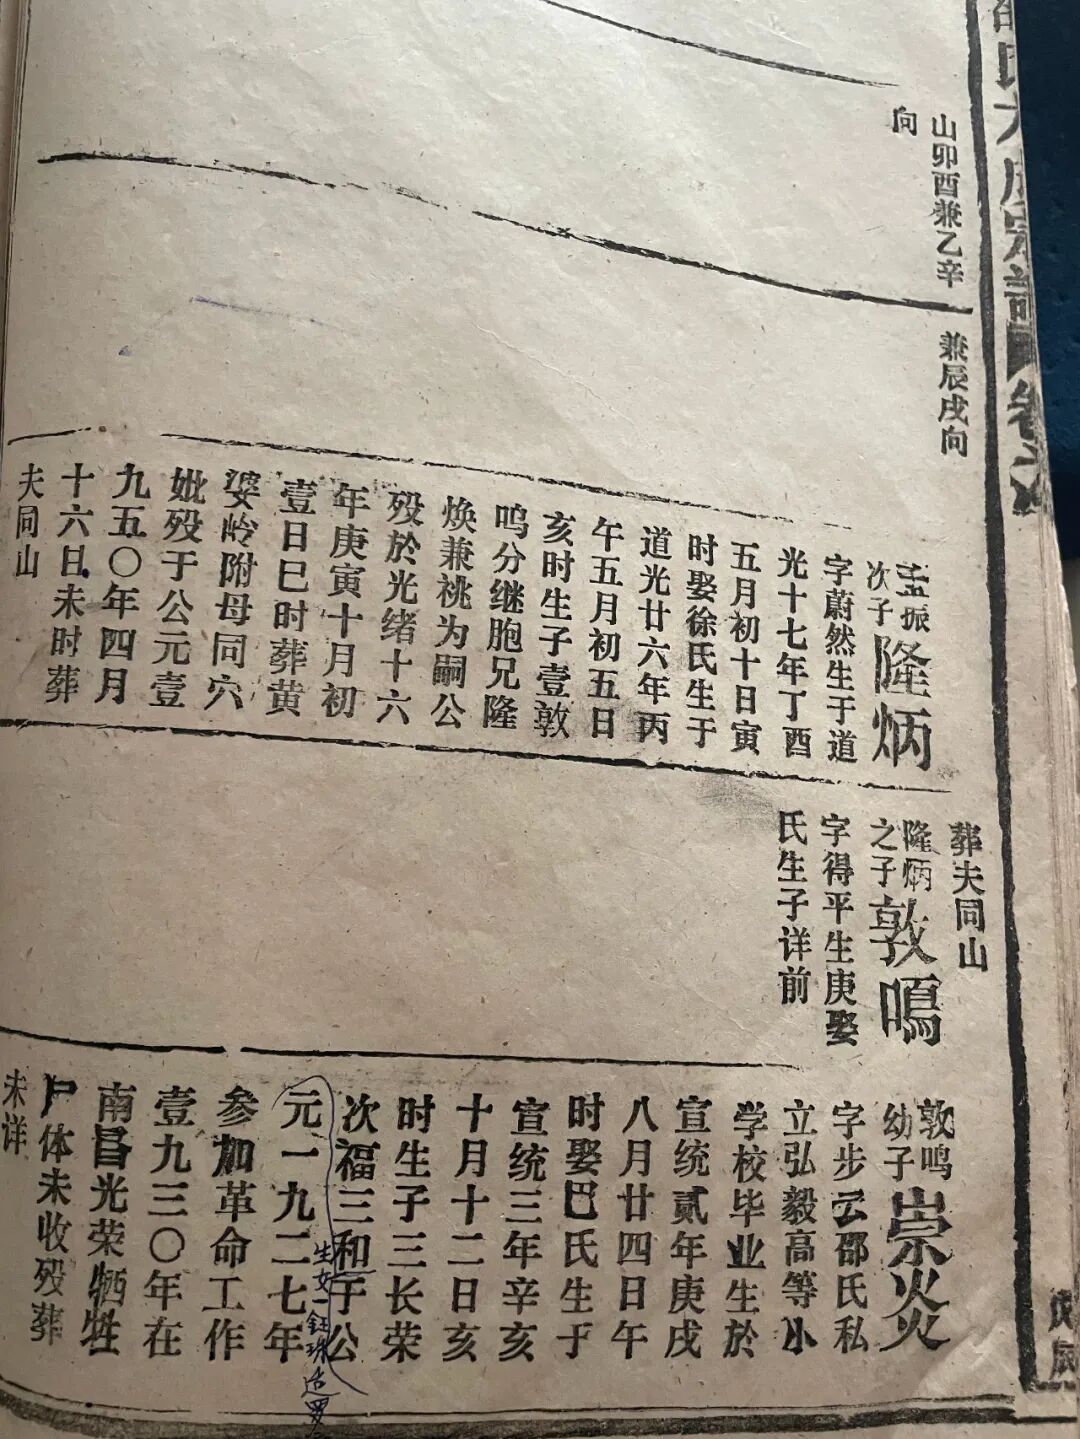 邵氏大成宗谱
卷之
戊辰
山卯酉兼乙辛
向
兼辰戌向
孟振
次子
隆炳
字蔚然生于道
光十七年丁酉
五月初十日寅
时娶徐氏生于
道光廿六年丙
午五月初五日
亥时生子壹敦
鸣分继胞兄隆
焕兼祧为嗣公
殁於光绪十六
年庚寅十月初
壹日巳时葬黄
婆岭附母同穴
妣殁于公元壹
九五〇年四月
十六日未时葬
夫同山
葬夫同山
隆炳
之子
敦鳴
字得平生庚娶
氏生子详前
敦鸣
幼子
崇炎
字步云邵氏私
立弘毅高等小
学校毕业生於
宣统贰年庚戌
八月廿四日午
时娶巴氏生于
宣统三年辛亥
十月十二日亥
时生子三长荣
次福三和于公
生女一钰珠适罗
元一九二七年
参加革命工作
壹九三〇年在
南昌光荣牺牲
尸体未收殁葬
未详